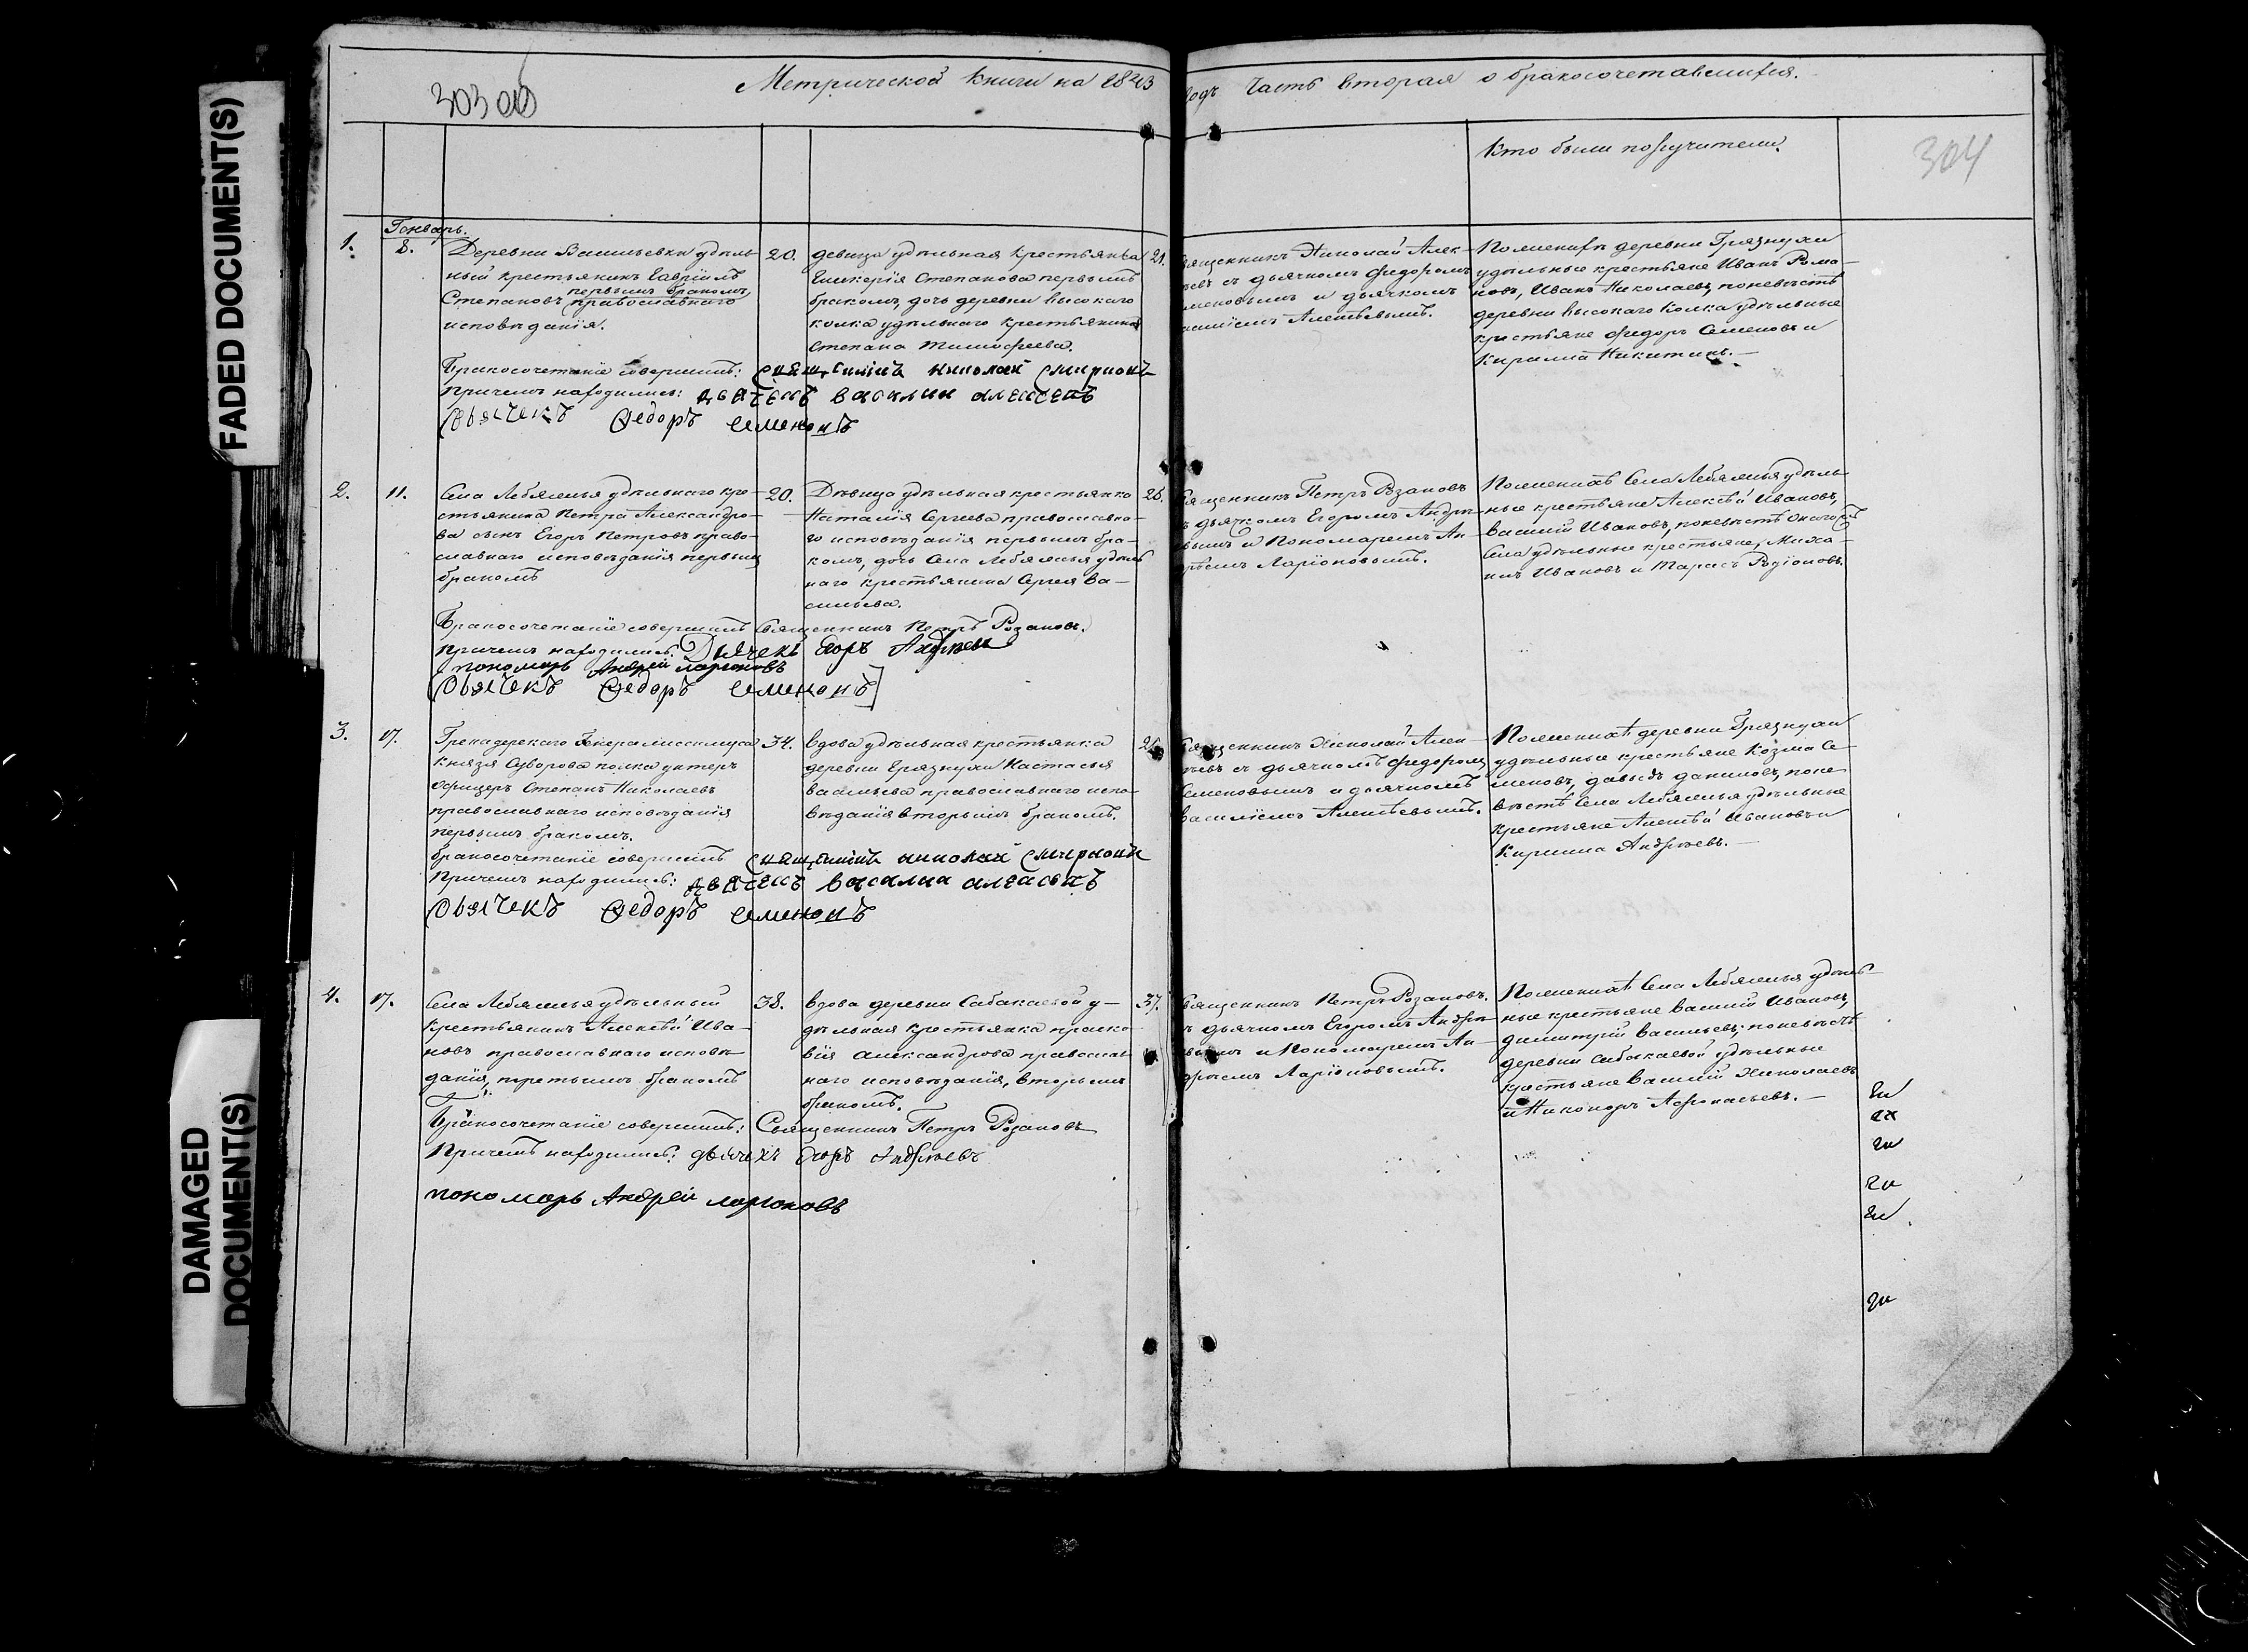 FADED DOCUMENT(S)
DAMAGED DOCUMENT(S)
Метрической книги на 1843
годъ Часть вторая о бракосочетавшихся.
304
Кто были поручители.
Генварь.
1.
8.
Деревни Васильевки удѣль-
ный крестьянинъ Гаврiилъ
первымъ бракомъ,
Степановъ православнаго
исповѣданiя.
20.
девица удѣльная крестьянка
Гликерiя Степанова первымъ
бракомъ, дочь деревни высокаго
колка удѣльнаго крестьянина
Степана Тимофеева.
21.
Священникъ Николай Алек-
ѣевъ съ дьячкомъ Федоромъ
меновымъ и дьячкомъ
асилiемъ Алексѣевымъ.
По женихѣ деревни Грязнухи
удѣльные крестьяне Иванъ Рома-
новъ, Иванъ Николаевъ, по невѣстѣ
деревни высокаго Колка удѣльные
крестьяне Федоръ Семеновъ и
Кирилла Никитинъ.—
Бракосочетанiе совершилъ: Священникъ Николай Смирновъ
Причемъ находились: дьячекъ василий алексеевъ
дьячекъ Федоръ семеновъ
2.
11.
Села Лебяжья удѣльнаго кре-
стьянина Петра Александро-
ва сынъ Егоръ Петровъ право-
славнаго исповѣданiя первымъ
бракомъ
20.
Дѣвица удѣльная крестьянка
Наталiя Сергеева православна-
го исповѣданiя первымъ бра-
комъ, дочь Села Лебяжья удѣль
наго крестьянина Сергея Ва-
сильева.
Священникъ Петръ Розановъ
ъ дьячкомъ Егоромъ Андре-
вымъ и Пономаремъ Ан-
дреемъ Ларiоновымъ.
По женихѣ Села Лебяжья удѣль-
ные крестьяне Алексѣй Ивановъ,
Василий Ивановъ, по невѣстѣ онагожъ
Села удѣльные крестьяне, Миха-
илъ Ивановъ и Тарасъ Родiоновъ.
Бракосочетанiе совершилъ Священникъ Петръ Розановъ.
Причемъ находились: Дьячекъ Егоръ Андреевъ
пономарь Андрей ларионовъ
дьячекъ Федоръ семеновъ
3.
17.
Гренадерскаго Генералиссимуса
Князя Суворова полка унтеръ
Офицеръ Степанъ Николаевъ
православнаго исповѣданiя
первымъ бракомъ.
34.
вдова удѣльная крестьянка
деревни Грязнухи Настасья
васильева православнаго испо-
вѣданiя вторымъ бракомъ.
Священникъ Николай Алек-
ѣевъ съ дьячкомъ Федоромъ
Семеновымъ и дьячкомъ
Василiемъ Алексѣевымъ.
По женихѣ деревни Грязнухи
удѣльные крестьяне Козма Се-
меновъ, давыдъ даниловъ, по не-
вѣстѣ Села Лебяжья удѣльные
крестьяне Алексѣй Ивановъ и
Кирилла Андреевъ.—
бракосочетанiе совершилъ Священникъ николай Смирновъ
Причемъ находились: дьячекъ василий алексеевъ
дьячекъ Федоръ семеновъ
4.
17.
Села Лебяжья удѣльный
крестьянинъ Алексѣй Ива-
новъ православнаго исповѣ-
данiя, третьимъ бракомъ
38.
вдова деревни Сабакаевой у-
дѣльная крестьянка праско-
вiя александрова православ-
наго исповѣданiя, вторымъ
бракомъ.
37.
Священникъ Петръ Розановъ.
ъ дьячкомъ Егоромъ Андре-
вымъ и Пономаремъ Ан-
дреемъ Ларiоновымъ.
По женихѣ Села Лебяжья удѣль-
ные крестьяне Василий Ивановъ,
димитрий васильевъ; по невѣстѣ
деревни сабакаевой удѣльные
крестьяне Василий Николаевъ
и Никоноръ Афонасьевъ.—
Бракосочетанiе совершилъ: Священникъ Петръ Розановъ
Причемъ находились: дьячекъ Егоръ Андреевъ
пономарь Андрей ларионовъ